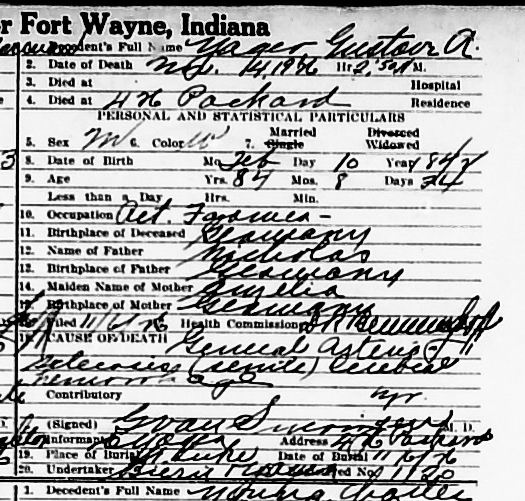 Fort Wayne, Indiana
Decedent's Full Name Yager Gustave A.
2. Date of Death Nov. 14, 1926 Hr. 2:50 P M.
3. Died at Hospital
4. Died at Packard Residence
PERSONAL AND STATISTICAL PARTICULARS
5. Sex M 6. Color W 7. Married Single Divorced Widowed
8. Date of Birth Mo. Feb Day 10 Year 1842
9. Age Yrs. 84 Mos. 8 Days 24
Less than a Day Hrs. Min.
10. Occupation Ret. Farmer -
11. Birthplace of Deceased Germany
12. Name of Father Nicholas
13. Birthplace of Father Germany
14. Maiden Name of Mother
Birthplace of Mother Germany
Filed 11/6/26 Health Commissioner
CAUSE OF DEATH General Arterio-
sclerosis (senile) Cerebral
Hemorrhage
Contributory
(Signed) M. D.
Informant Address Packard
19. Place of Burial Date of Burial 11/6/26
20. Undertaker No.
1. Decedent's Full Name